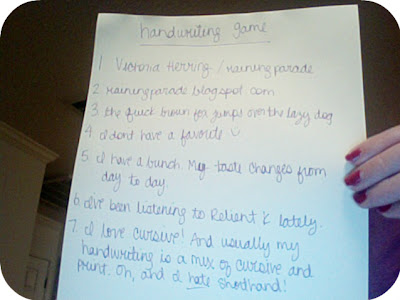 handwriting game
1 Victoria Herring / rainingparade
2 rainingparade.blogspot.com
3 the quick brown fox jumps over the lazy dog
4 I don't have a favorite
5. I have a bunch. My taste changes from
day to day.
6. I've been listening to Relient K lately.
7. I love cursive! And usually my
handwriting is a mix of cursive and
print. Oh, and I hate shorthand!